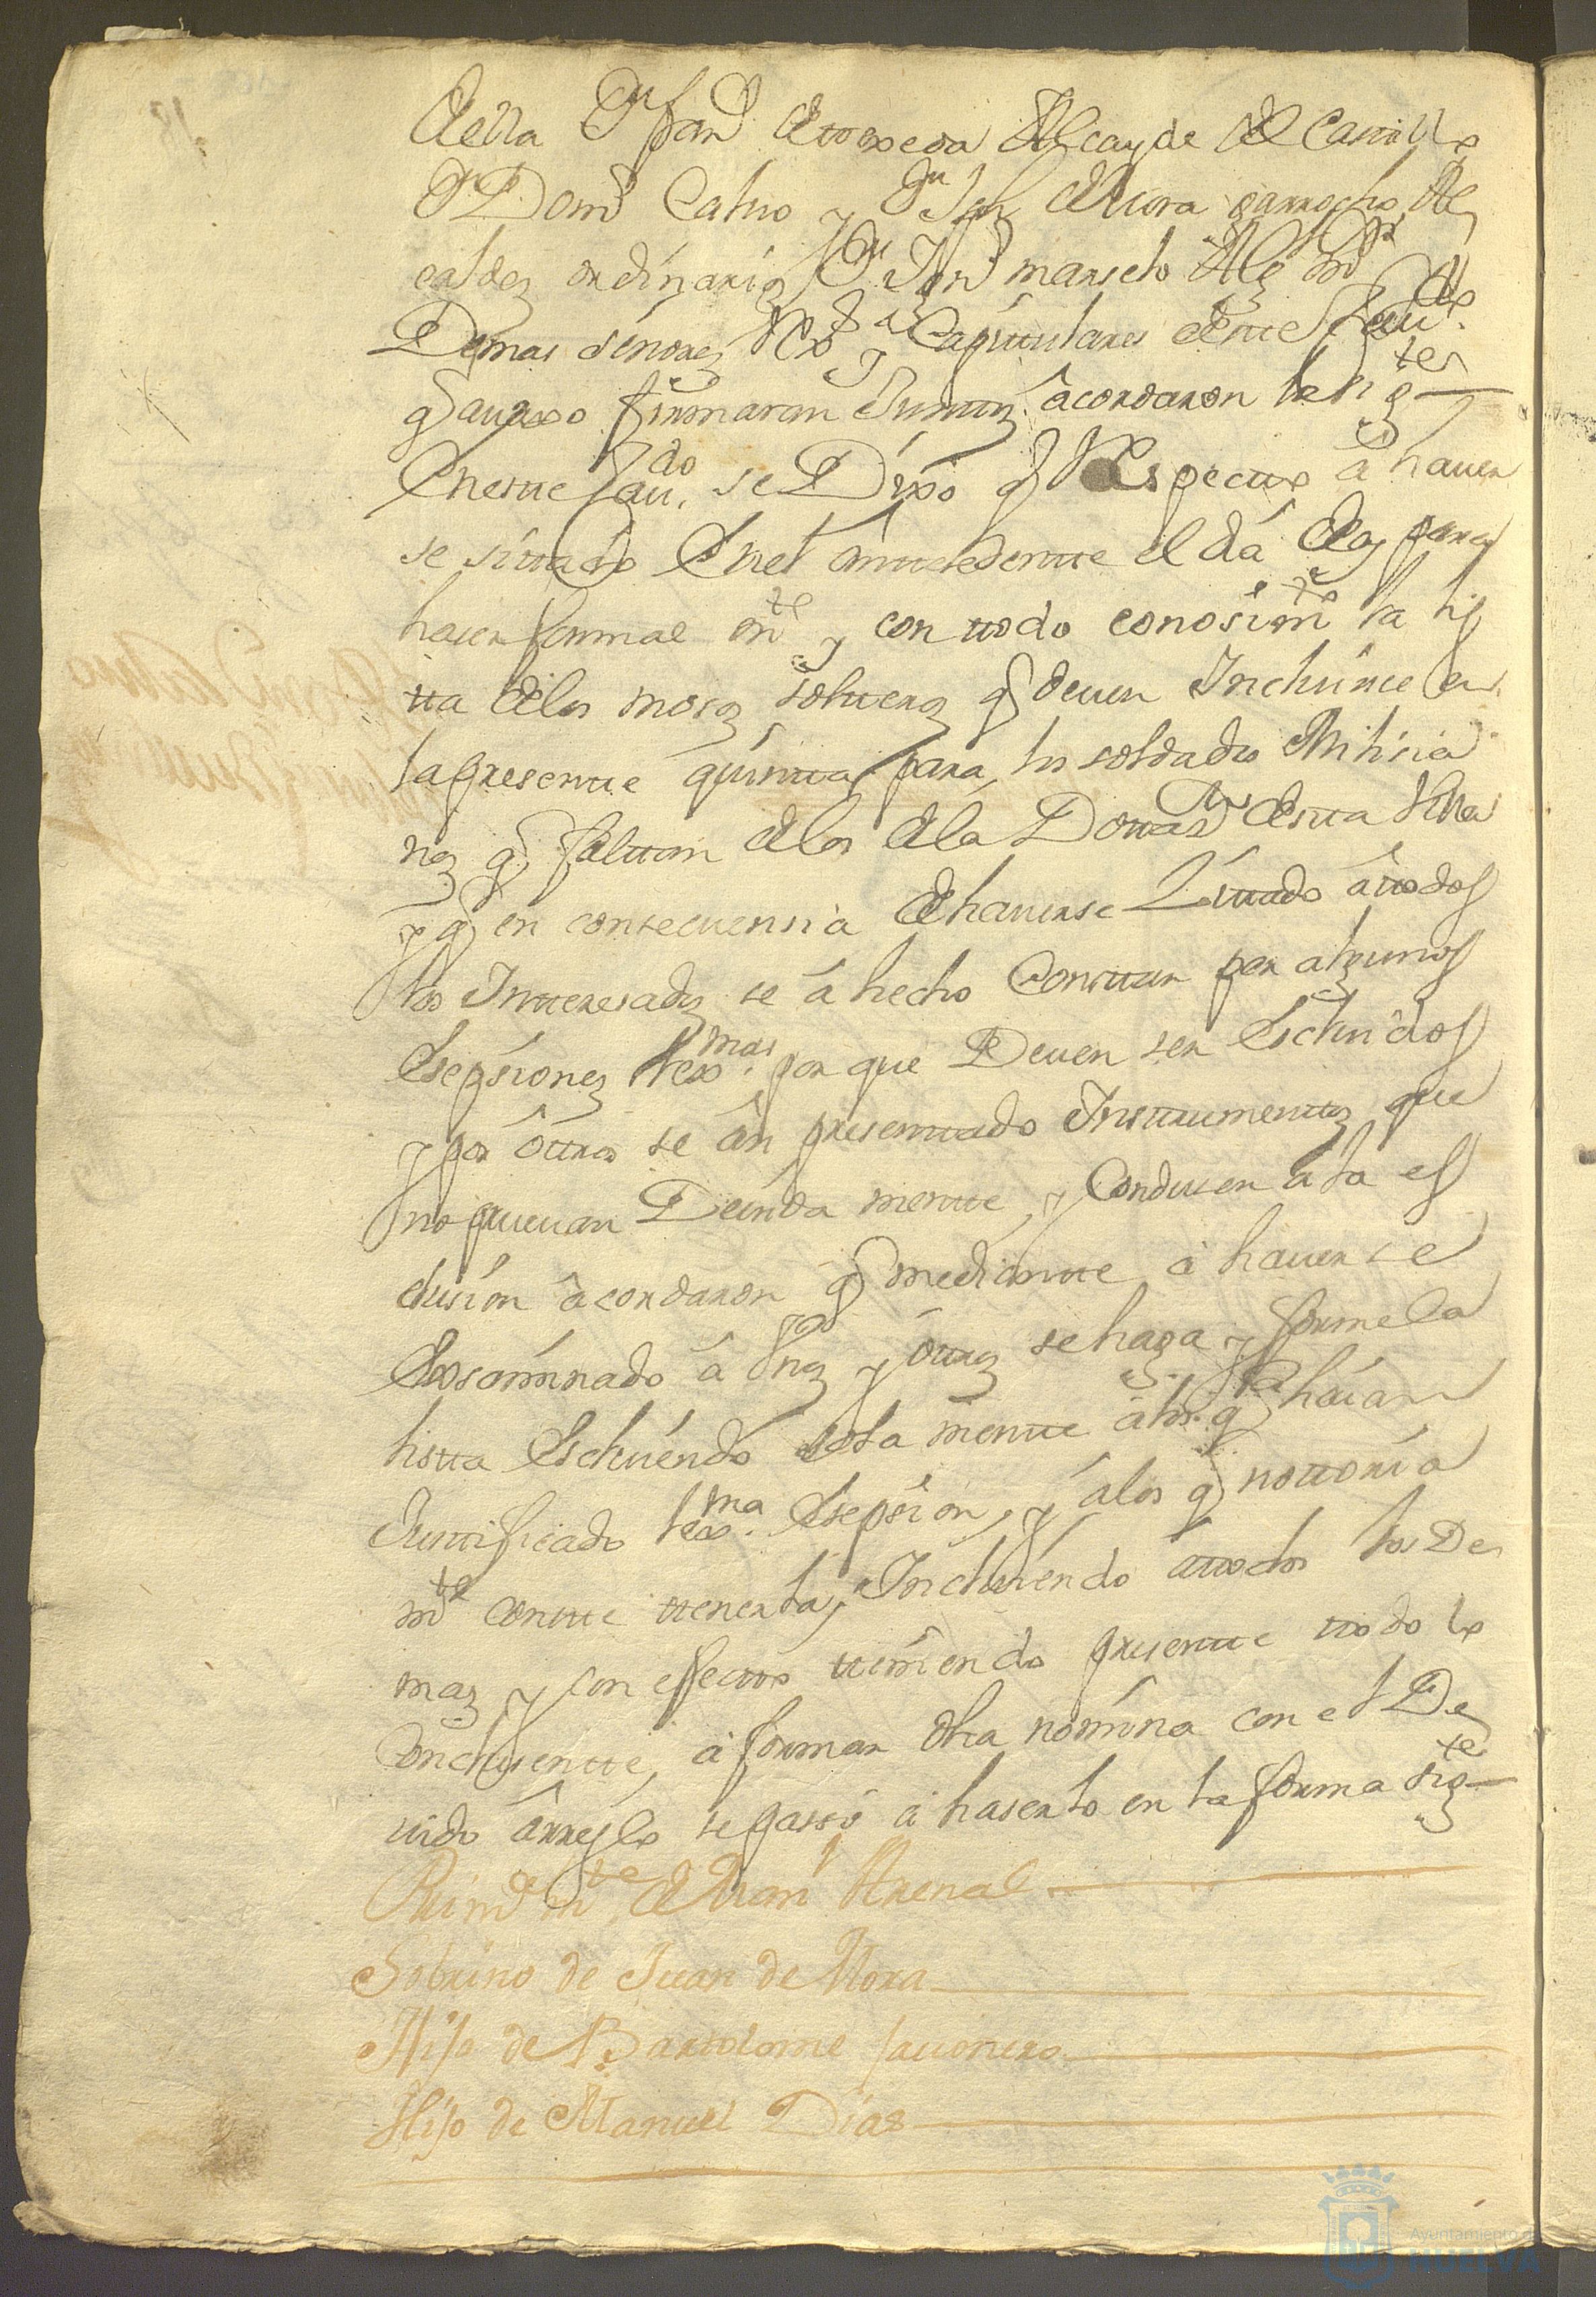 della Dn fernd de toxeda Alcayde del Castillo
Dn Domo Calvo y Dn Jph de Mora garrocho Al
caldes ordinarios Dn Jph marselo Alg mor
Demas señores Rexs y Capitulares de este Cavdo
q avaxo firmaran Juntos acordaron lo sigtes
En este Cavdo se Dixo q Respecto à haver
se sitado En el antesedente el día de oy para
haser formal mte y con todo conosimto la lis
ta delos mosos solteros q deven Incluirse en
la presente quinta para los soldados Milisia
nos q faltan de los de la Dotasn de esta Villa
y q en consecuensia de haverse Sitado à todos
los Interesados se á hecho Constar por algunos
Esepsiones lexmas por que Deven ser Escluidos
y por otros se àn presentado Instrumentos que
no pruevan Devida mente, y Condusen à la es
clusion àcordaron q mediante à haverse
Exsaminado à Unos y otros se haga y forme la
lista Escluiendo solo mente à los q haian
Justificado lexma Esepsion, y à los q notoria
mte conste tenerla, Incluiendo à todos los De
mas y con efecto teniendo presente todo lo
Condusente, à formar dha nomina con el De
vido arreglo se passó à haserlo en la forma sigte
Primeramte de Juan Arenal
Sobrino de Juan de Mora
Hijo de Bartolome
Hijo de Manuel Dias
Ayuntamiento de
HUELVA